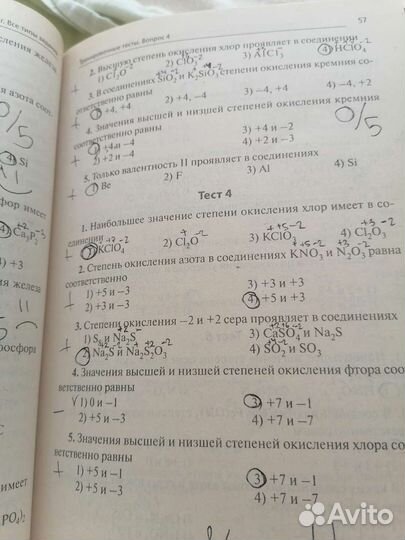 г. Все типы
Тренировочные тесты. Вопрос 4 57
2. Высшую степень окисления хлор проявляет в соединении
1) Cl₂O 2) ClO₂ 3) AlCl₃ 4) HClO₄
3. В соединениях SiO₂ и K₂SiO₃ степени окисления кремния со-
ответственно равны
1) +4, +4 2) +4, −4 3) −4, +4 4) +2, +4
4. Значения высшей и низшей степеней окисления кремния
соответственно равны
1) +4 и −4 3) +4 и −2
2) +2 и −4 4) +2 и −3
0/5
5. Только валентность II проявляет в соединениях
1) Be 2) F 3) Al 4) Si
Тест 4
1. Наибольшее значение степени окисления хлор имеет в со-
единении
1) KClO₄ 2) Cl₂O 3) KClO₃ 4) Cl₂O₃
2. Степень окисления азота в соединениях KNO₃ и N₂O₃ равна
соответственно
1) +5 и −3 3) +3 и +3
2) +3 и −3 4) +5 и +3
3. Степени окисления −2 и +2 сера проявляет в соединениях
1) S₈ и Na₂S 3) CaSO₄ и Na₂S
2) Na₂S и Na₂S₂O₃ 4) SO₂ и SO₃
4. Значения высшей и низшей степеней окисления фтора соот-
ветственно равны
1) 0 и −1 3) +7 и −1
2) +5 и −1 4) +7 и −7
5. Значения высшей и низшей степеней окисления хлора со
ветственно равны
1) +5 и −1 3) +7 и −1
2) +5 и −3 4) +7 и −7
ления железа
0/5
4) Si
Al
фор имеет
4) Ca₃P₂
4) +3
ия железа
осфора
имеет
PO₄)₂
Avito